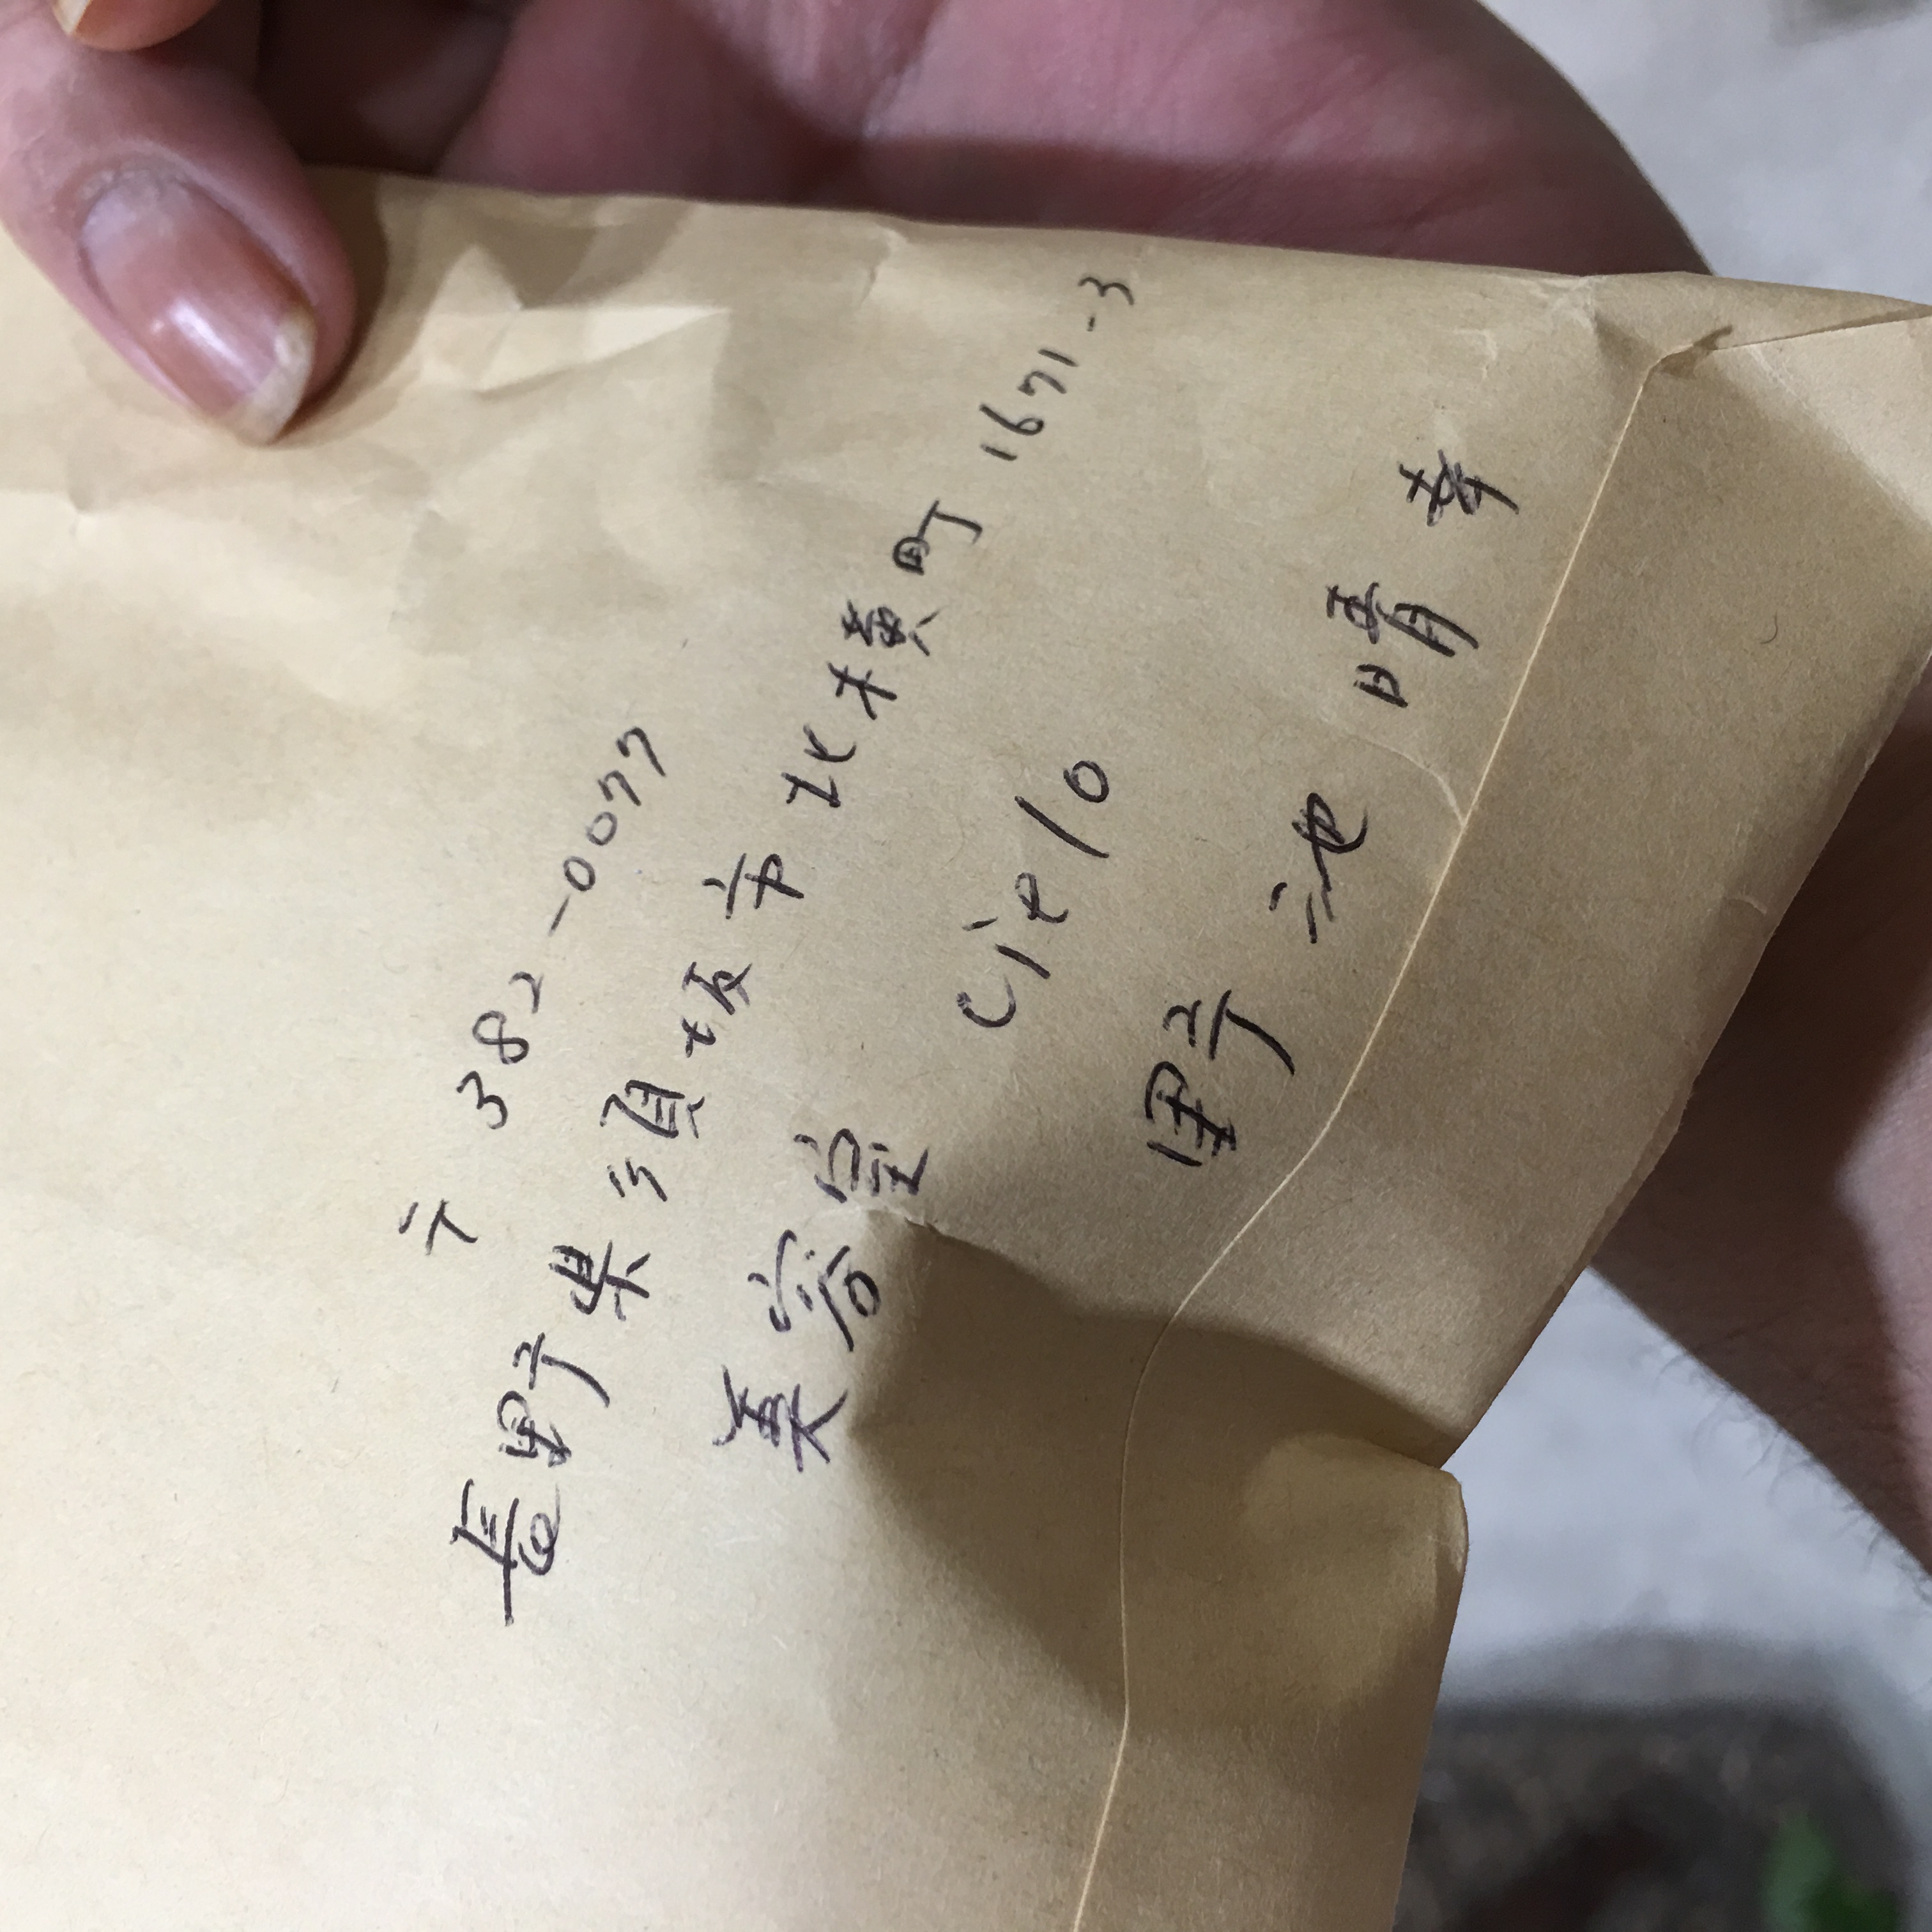 〒 382-0077
長野県須坂市北横町1671-3
美容室 cielo
野池 晴幸